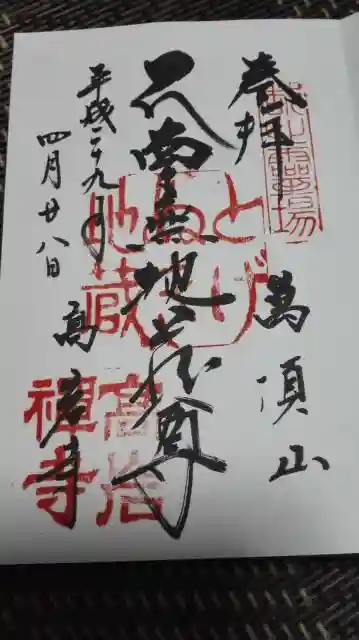 奉拝
萬頂山
南無地蔵尊
とげぬき
地蔵
平成二十九年
四月廿八日
高岩寺
高岩
禅寺